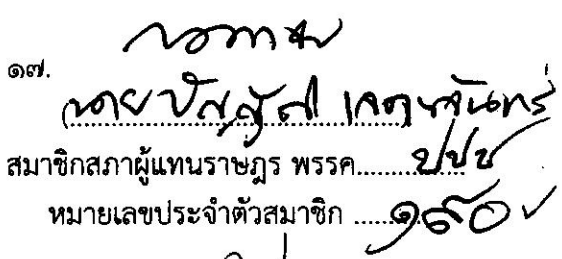 ๑๗.
(นายบัญญัติ เจตนจันทร์
สมาชิกสภาผู้แทนราษฎร พรรค ปชป
หมายเลขประจำตัวสมาชิก ๑๙๐